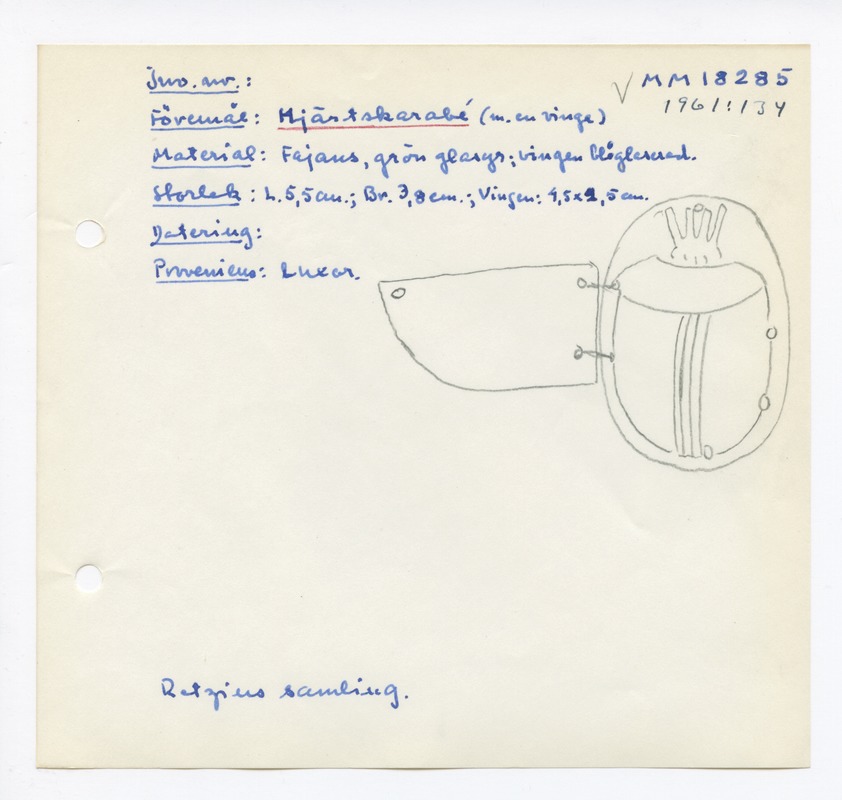 Inv. nr.: MM 18285
1961:134
Föremål: Hjärtskarabé (m. en vinge)
Material: Fajans, grön glasyr; vingen blåglaserad.
Storlek: L. 5,5 cm.; Br. 3,8 cm.; Vingen: 4,5x2,5 cm.
Datering:
Proveniens: Luxor.
Retzius samling.